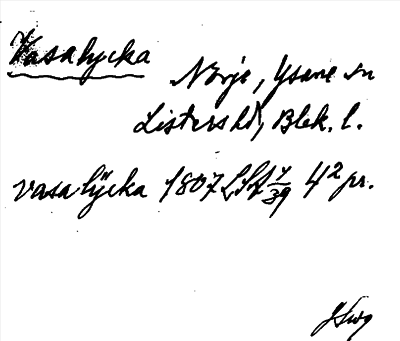 Vasalycka
Norje, Ysane sn
Listers hd, Blek. l.
Vasa lÿcka 1807 LSA 4² pr.